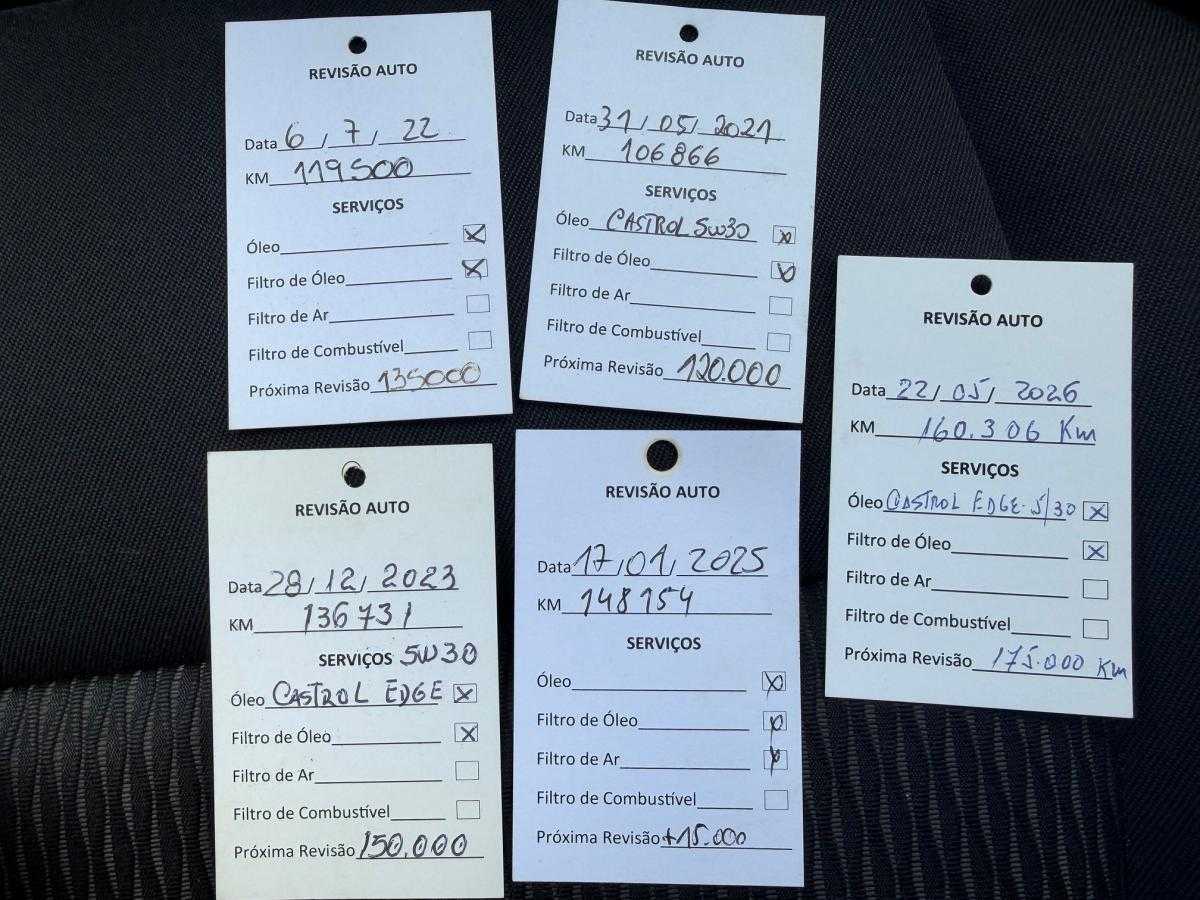 REVISÃO AUTO
Data 6 / 7 / 22
KM 119500
SERVIÇOS
Óleo
Filtro de Óleo
Filtro de Ar
Filtro de Combustível
Próxima Revisão 135000
REVISÃO AUTO
Data 31 / 05 / 2021
KM 106866
SERVIÇOS
Óleo CASTROL 5W30
Filtro de Óleo
Filtro de Ar
Filtro de Combustível
Próxima Revisão 120.000
REVISÃO AUTO
Data 22 / 05 / 2026
KM 160.306 Km
SERVIÇOS
Óleo CASTROL EDGE 5/30
Filtro de Óleo
Filtro de Ar
Filtro de Combustível
Próxima Revisão 175.000 Km
REVISÃO AUTO
Data 28 / 12 / 2023
KM 136731
SERVIÇOS 5W30
Óleo CASTROL EDGE
Filtro de Óleo
Filtro de Ar
Filtro de Combustível
Próxima Revisão 150.000
REVISÃO AUTO
Data 17 / 01 / 2025
KM 148154
SERVIÇOS
Óleo
Filtro de Óleo
Filtro de Ar
Filtro de Combustível
Próxima Revisão +15.000